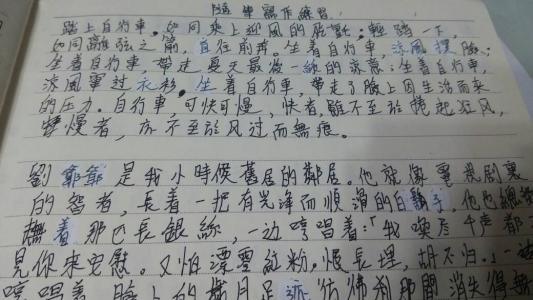 隨筆寫作練習
踏上自行車，如同乘上迎風的
如同離弦之箭，直往前奔。坐着自行車，涼風撲臉；
坐着自行車，帶走夏天最後一絲的涼意；坐着自行車，
涼風穿过衣衫。坐着自行車，帶走了臉上因生活而來
的压力。自行車可快可慢，快者，雖不至於捲起狂风，
慢者，亦不至於风过而無痕。
劉爺爺是我小時候舊居的鄰居。他就像電視劇裏
的智者，長着一把有光泽而順滑的白鬍子，他也總愛
撫着那巴長銀絲，一边哼唱着：「我喚左千声都
見你來安慰。又怕漂零紅粉，恨長埋，胡不归。」一边
哼唱着，臉上的歲月足迹彷彿刹那間消失得無